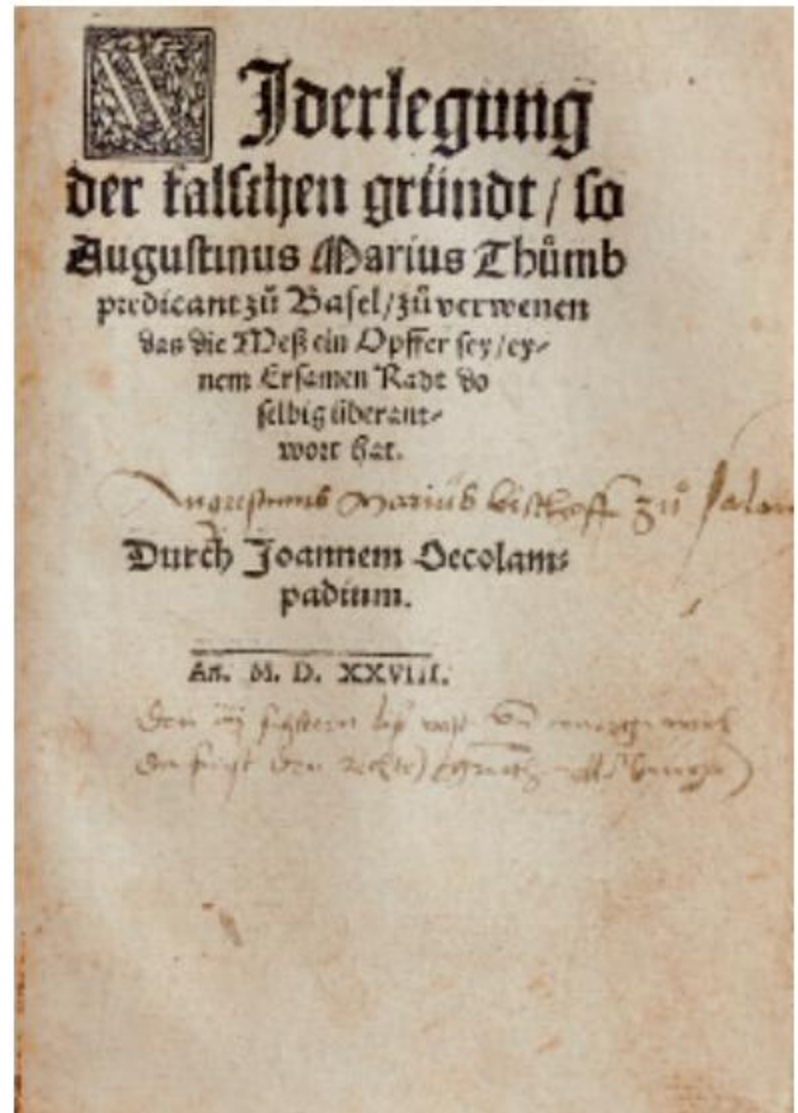 WJderlegung
der falschen gründt / so
Augustinus Marius Thůmb
predicant zů Basel / zů verwenen
das die Meß ein Opffer sey / ey⸗
nem Ersamen Radt do
selbig überant⸗
wort hat.
Augustinus Marius bischoff zů
Durch Joannem Oecolam⸗
padium.
An. M. D. XXVIII.